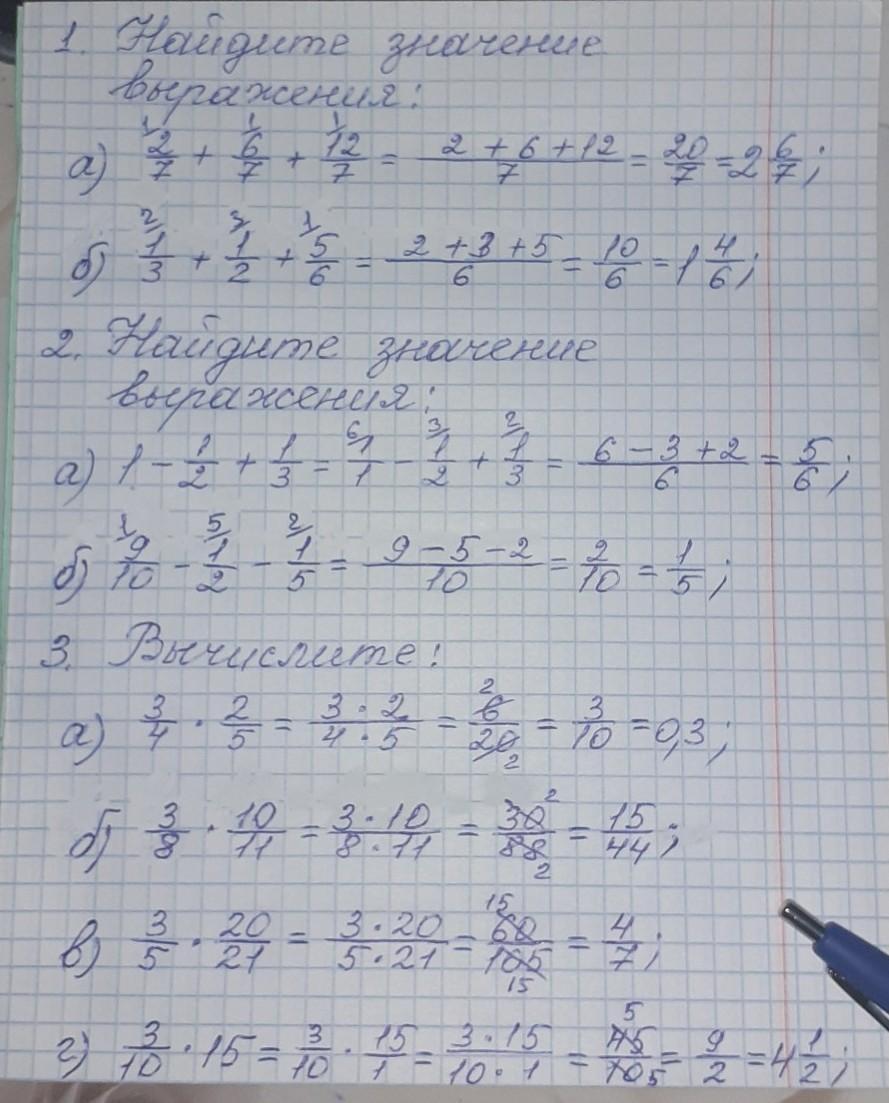 1. Найдите значение
выражения:
а) 2/7 + 6/7 + 12/7 = (2 + 6 + 12)/7 = 20/7 = 2 6/7;
б) 1/3 + 1/2 + 5/6 = (2 + 3 + 5)/6 = 10/6 = 1 4/6;
2. Найдите значение
выражения:
а) 1 - 1/2 + 1/3 = 1/1 - 1/2 + 1/3 = (6 - 3 + 2)/6 = 5/6;
б) 9/10 - 1/2 - 1/5 = (9 - 5 - 2)/10 = 2/10 = 1/5;
3. Вычислите:
а) 3/4 · 2/5 = (3 · 2)/(4 · 5) = 6/20 = 3/10 = 0,3;
б) 3/8 · 10/11 = (3 · 10)/(8 · 11) = 30/88 = 15/44;
в) 3/5 · 20/21 = (3 · 20)/(5 · 21) = 60/105 = 4/7;
г) 3/10 · 15 = 3/10 · 15/1 = (3 · 15)/(10 · 1) = 45/10 = 9/2 = 4 1/2;